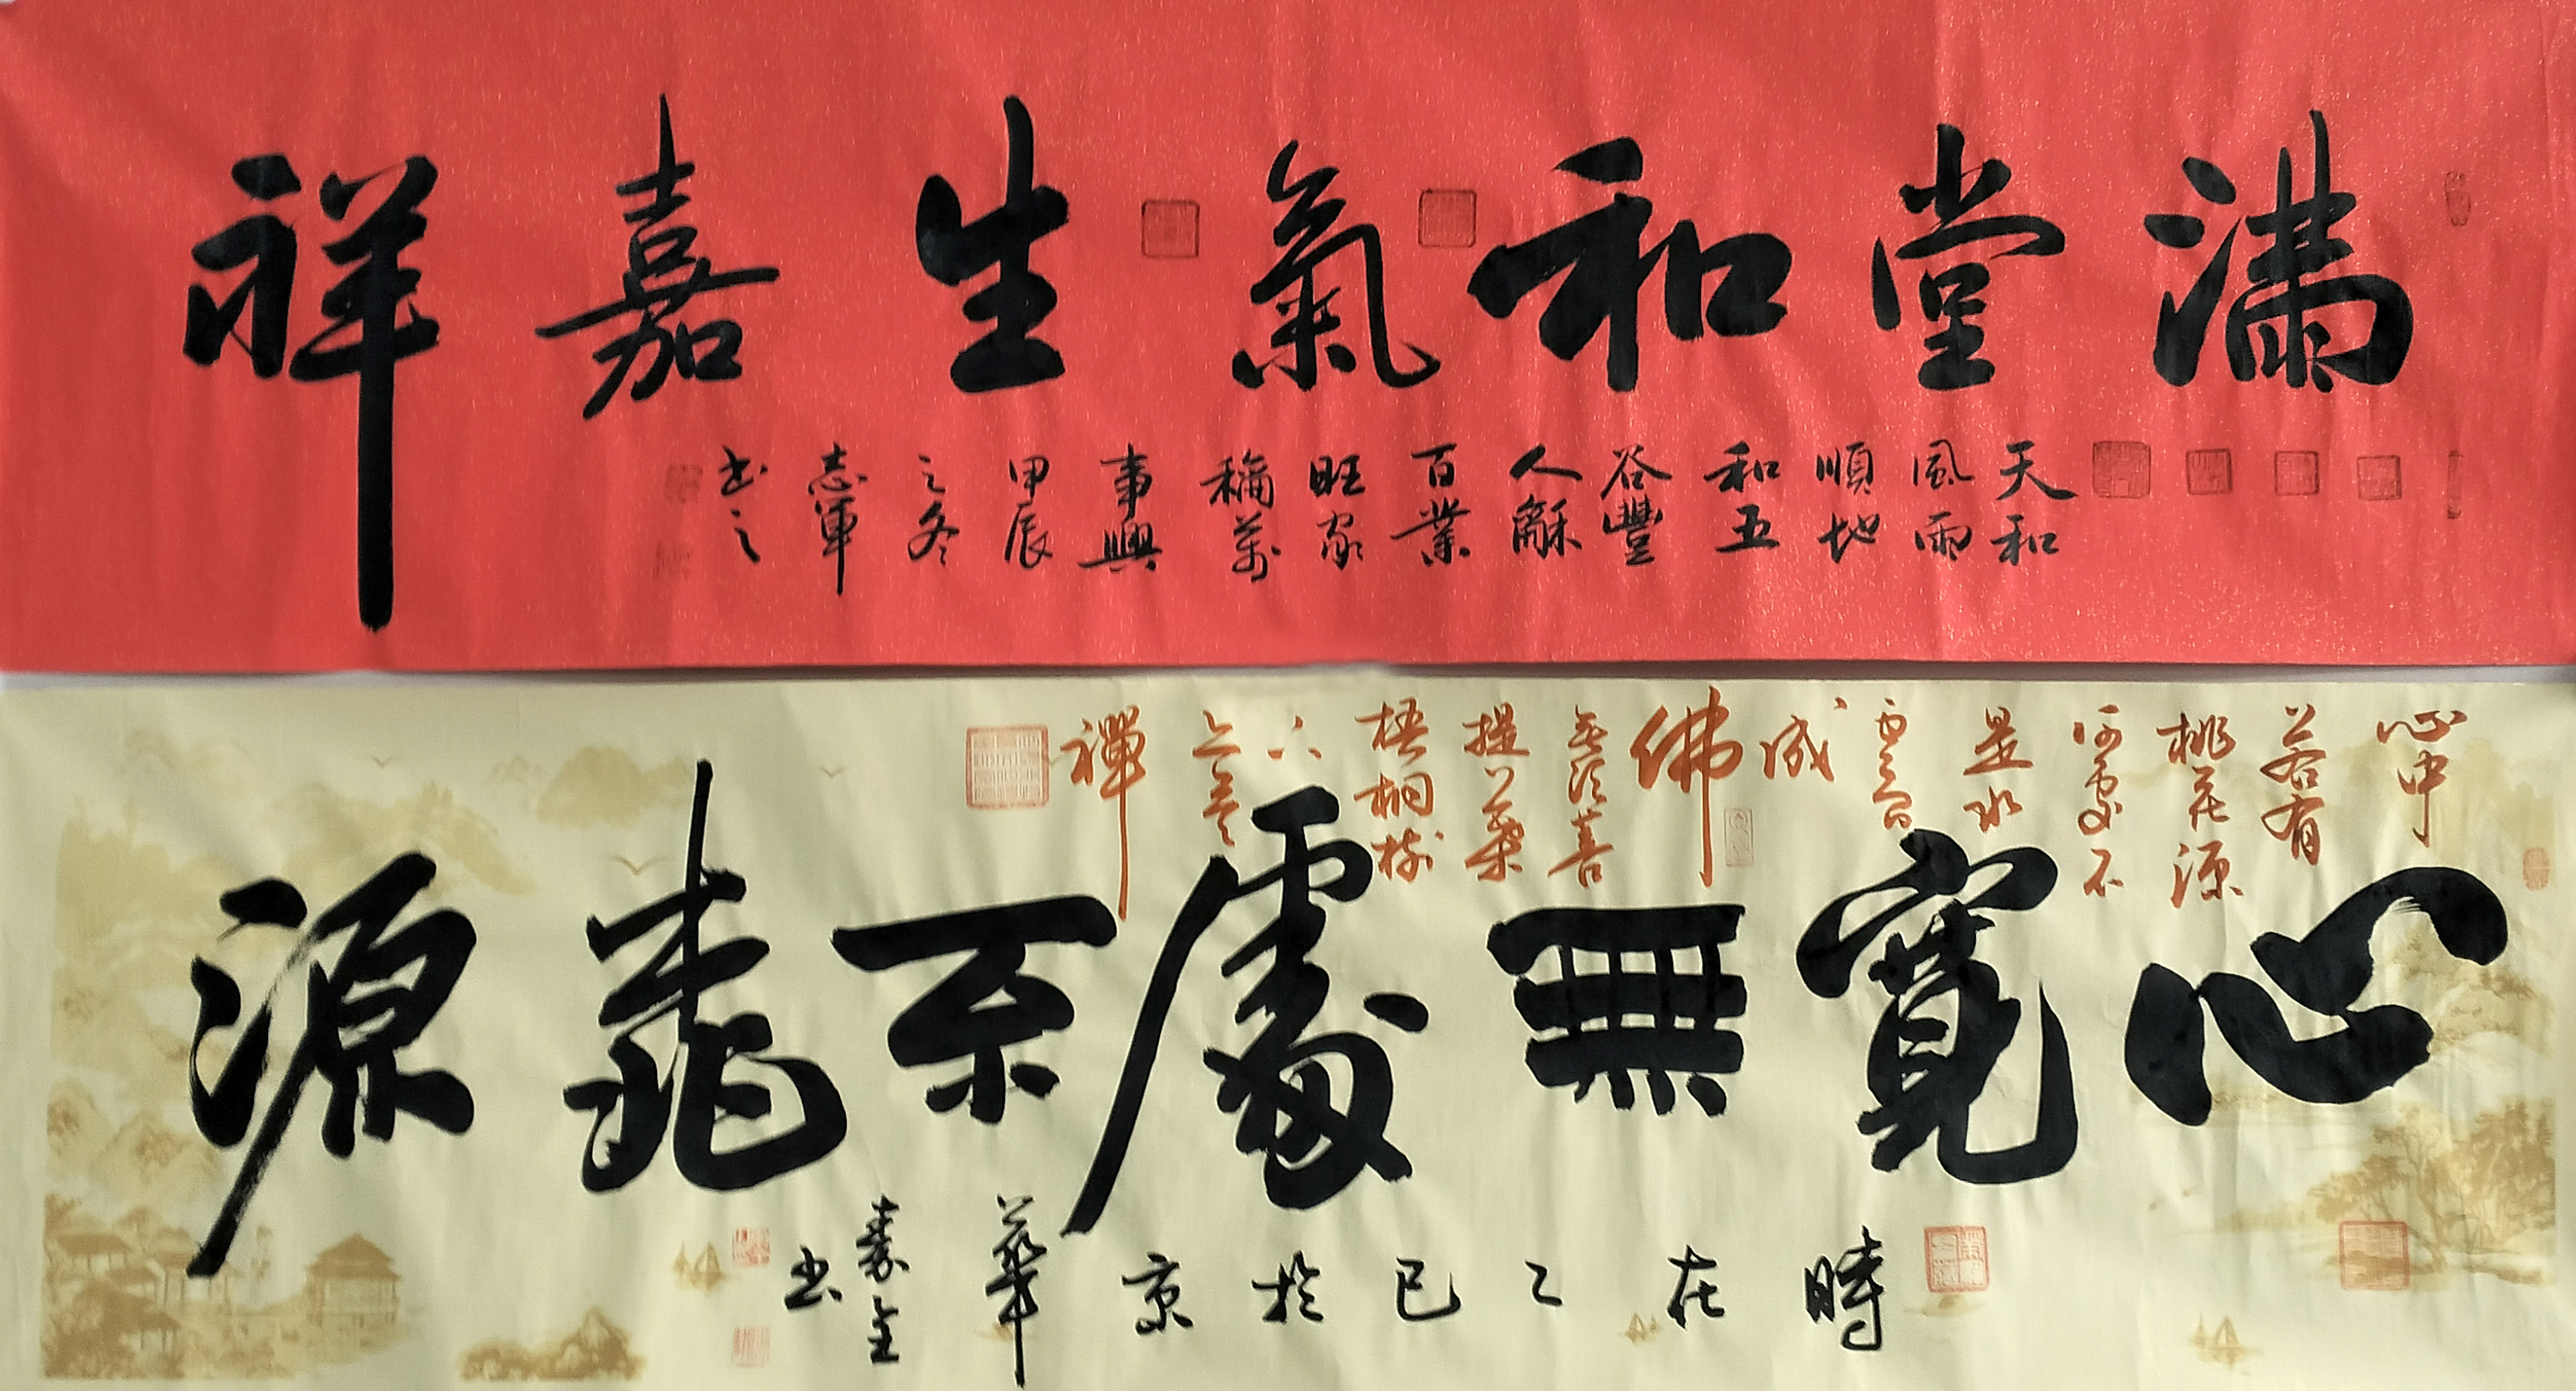 滿堂和氣生嘉祥
天和
風雨
順地
和五
谷豐
人龢
百業
旺家
萬
事興
甲辰
之冬
志軍
书之
心中
若有
桃花源
何處不
是水
雲間
成
佛
無須菩
提葉
梧桐树
下
亦參
禪
心寬無處不桃源
時在乙巳於京華
书